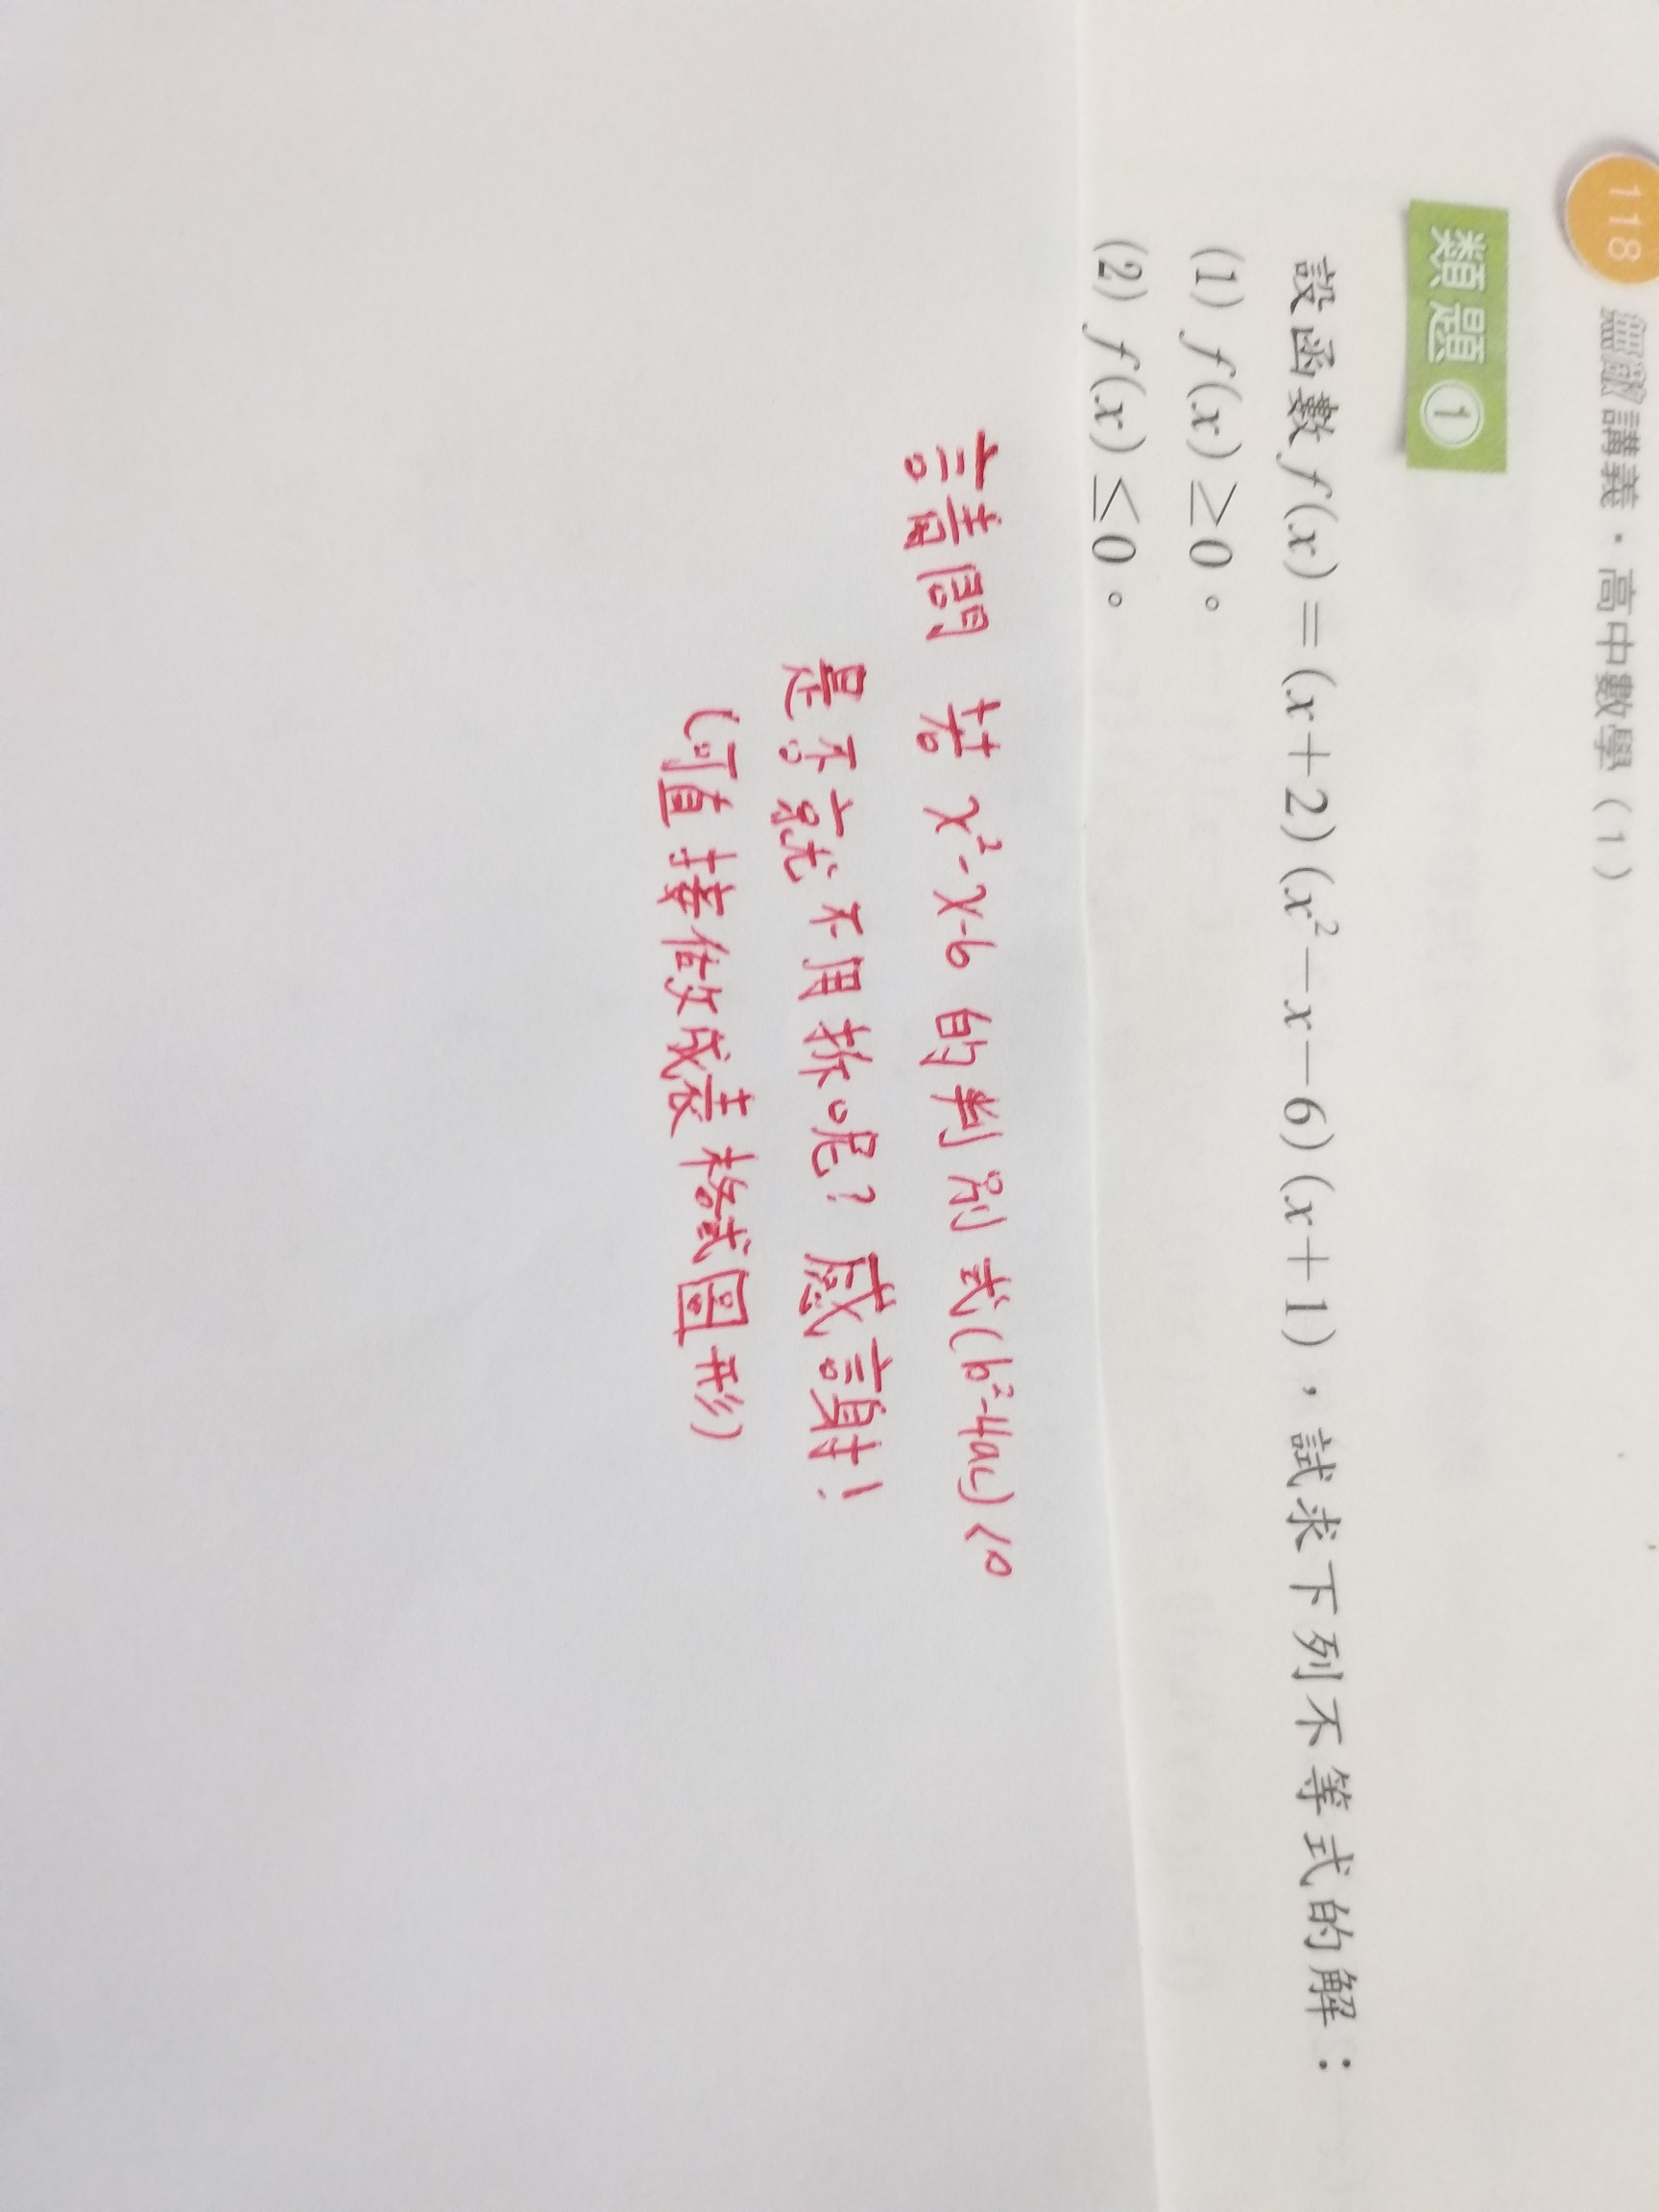 118 無敵講義・高中數學(1)
類題①
設函數 f(x)=(x+2)(x²-x-6)(x+1),試求下列不等式的解:
(1) f(x)≥0。
(2) f(x)≤0。
請問 若 x²-x-6 的判別式(b²-4ac)<0
是否就不用拆呢?感謝!
(可直接做成表格或圖形)